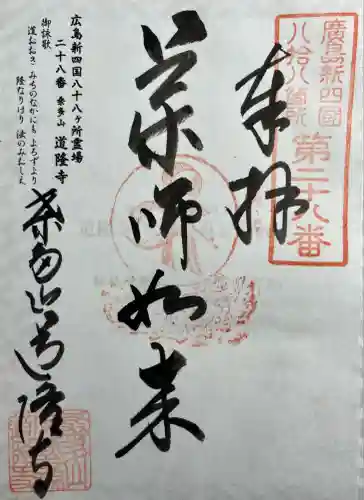 廣島新四國
八拾八箇所
第二十八番
奉拝
薬師如来
広島新四国八十八ヶ所霊場
二十八番 奈多山 道隆寺
御詠歌
道おおき みちのなかにも よろずより
隆なりけり 法のみおしえ
奈多山道隆寺